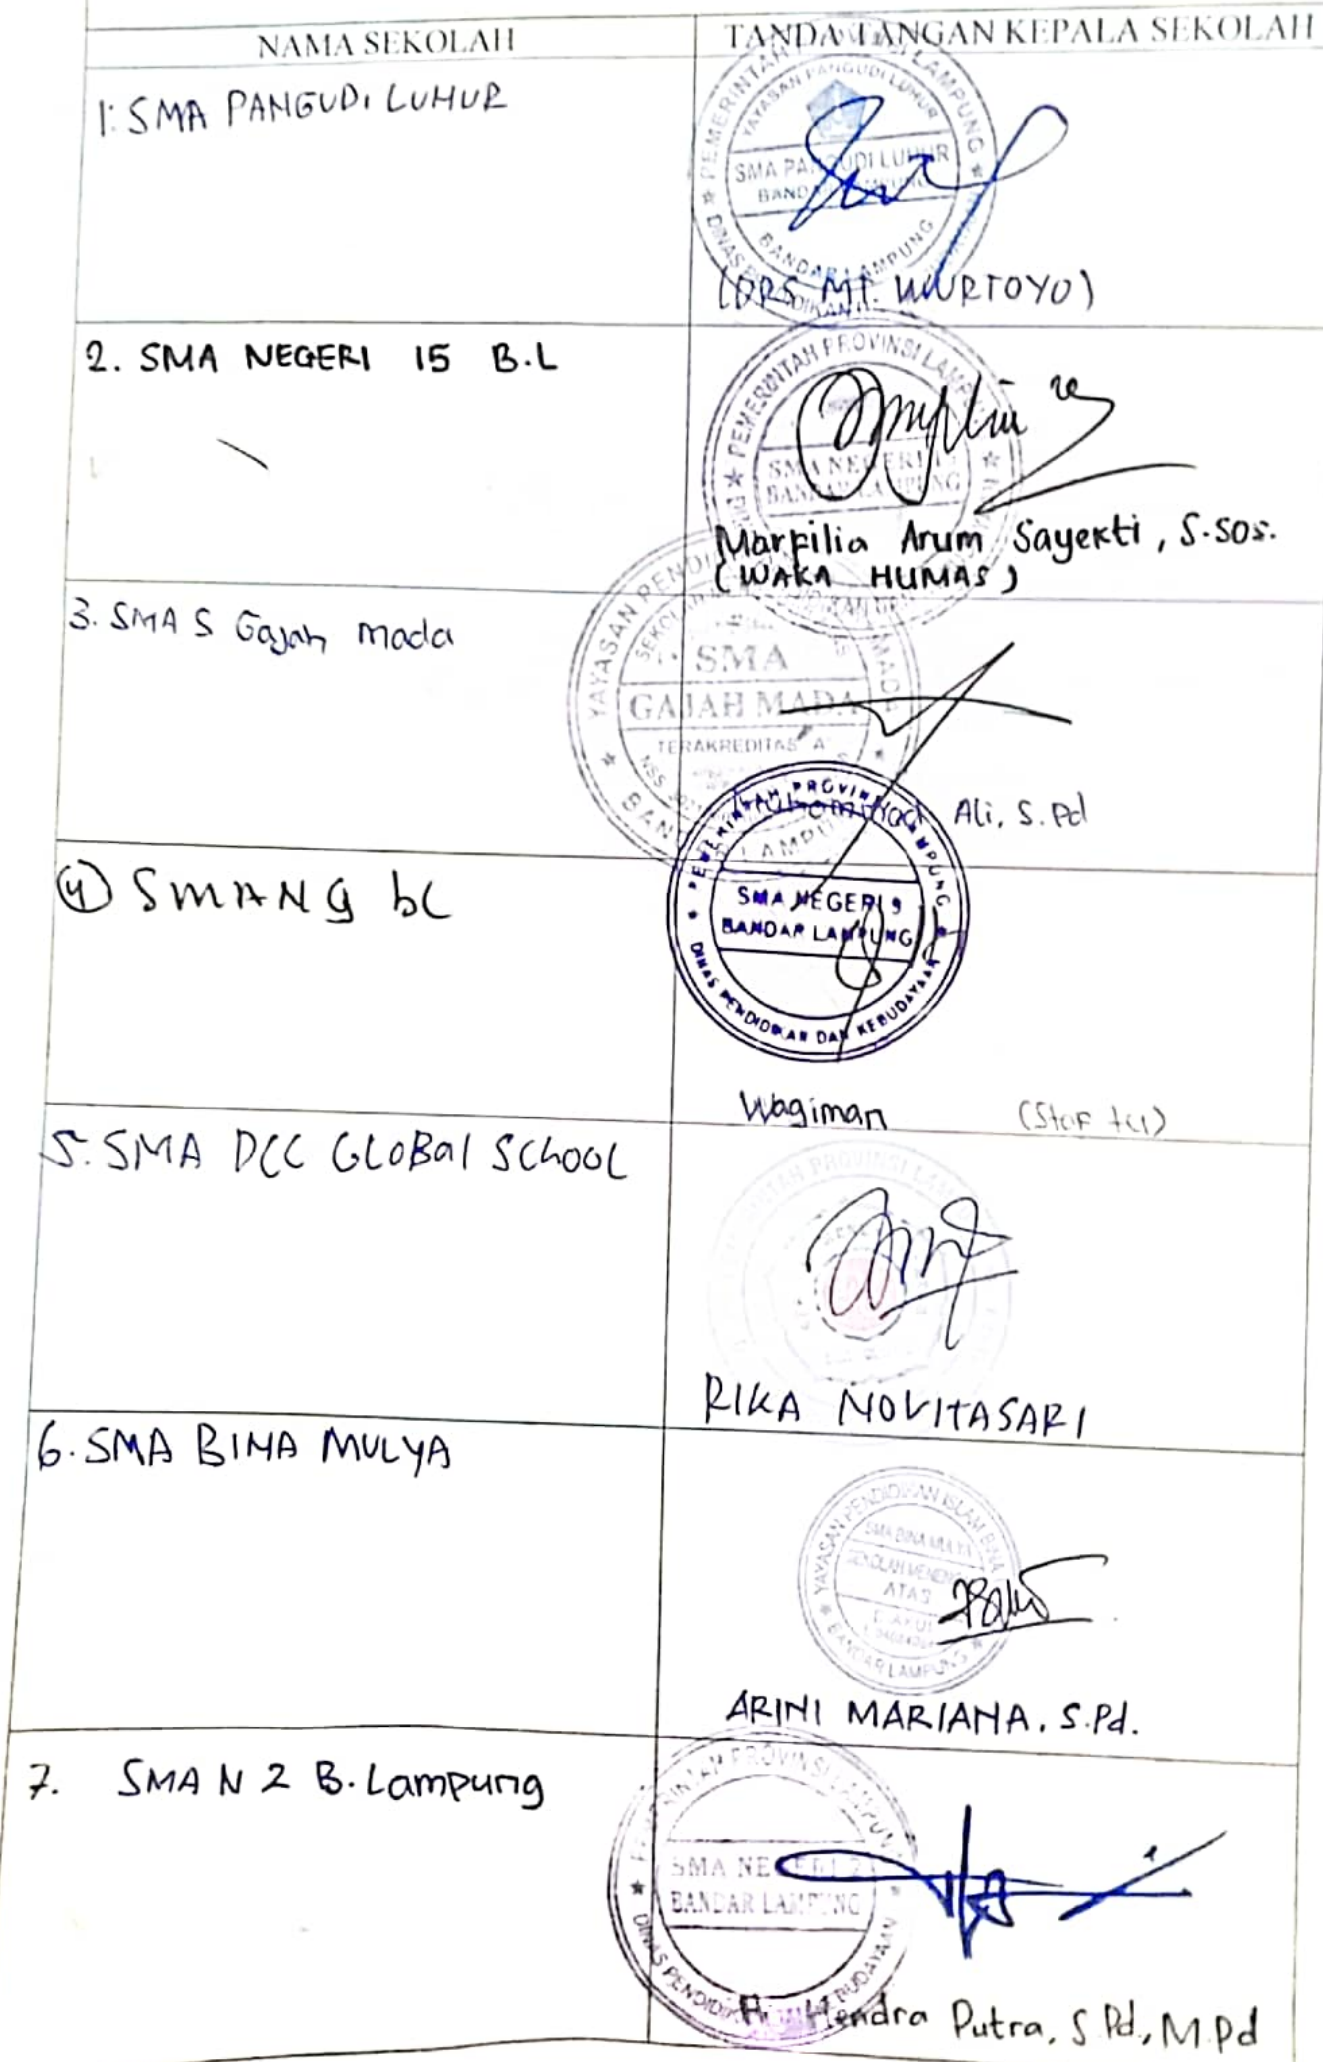 NAMA SEKOLAH
TANDA TANGAN KEPALA SEKOLAH
1. SMA PANGUDI LUHUR
PEMERINTAH LAMPUNG
YAYASAN PANGUDI LUHUR
SMA PANGUDI LUHUR
BANDAR LAMPUNG
BANDAR LAMPUNG
(DRS. MT. WURTOYO)
2. SMA NEGERI 15 B.L
PEMERINTAH PROVINSI LAMPUNG
SMA NEGERI
BANDAR LAMPUNG
Marfilia Arum Sayekti, S.Sos.
(WAKA HUMAS)
3. SMA S Gajah mada
YAYASAN
SMA
GAJAH MADA
TERAKREDITASI "A"
NSS
LAMPUNG
Muhammad Ali, S.Pd
4 SMAN 9 bL
PEMERINTAH PROVINSI LAMPUNG
SMA NEGERI 9
BANDAR LAMPUNG
DINAS PENDIDIKAN DAN KEBUDAYAAN
Wagiman (Staf tu)
5. SMA DCC GLOBal SChOOL
PROVINSI
RIKA NOVITASARI
6. SMA BINA MULYA
YAYASAN PENDIDIKAN ISLAM BINA
SMA BINA MULYA
SEKOLAH
ATAS
BANDAR LAMPUNG
ARINI MARIANA, S.Pd.
7. SMA N 2 B. Lampung
PROVINSI LAMPUNG
SMA NEGERI 2
BANDAR LAMPUNG
DINAS PENDIDIKAN KEBUDAYAAN
Hendra Putra, S.Pd., M.Pd